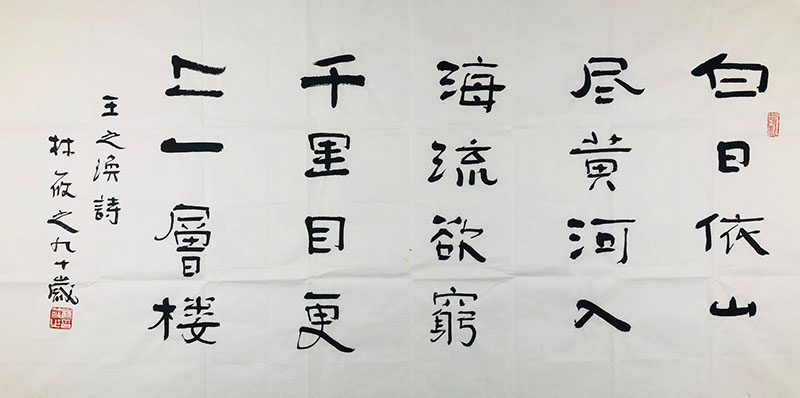 白日依山
尽黄河入
海流欲窮
千里目更
上一層楼
王之渙詩
林筱之九十歲